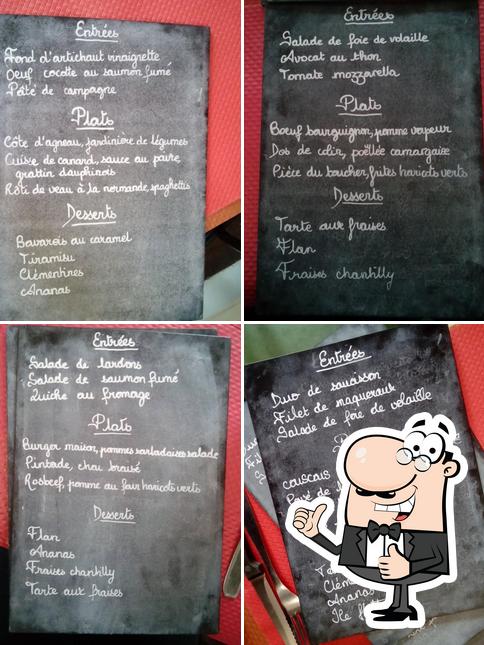 Entrées
Fond d'artichaut vinaigrette
Oeuf cocotte au saumon fumé
Pâté de campagne
Plats
Côte d'agneau, jardinière de légumes
Cuisse de canard, sauce au poivre,
gratin dauphinois
Roti de veau à la normande, spaghettis
Desserts
Bavarois au caramel
Tiramisu
Clémentines
Ananas
Entrées
Salade de foie de volaille
Avocat au thon
Tomate mozzarella
Plats
Boeuf bourguignon, pomme vapeur
Dos de colin, poëllée camargaise
Pièce du boucher, frites haricots verts
Desserts
Tarte aux fraises
Flan
Fraises chantilly
Entrées
Salade de lardons
Salade de saumon fumé
Quiche au fromage
Plats
Burger maison, pommes sarladaises salade
Pintade, chou braisé
Rosbeef, pomme au four haricots verts
Desserts
Flan
Ananas
Fraises chantilly
Tarte aux fraises
Entrées
Duo de saucisson
Filet de maquereaux
Salade de foie de volaille
couscous
de
Ananas